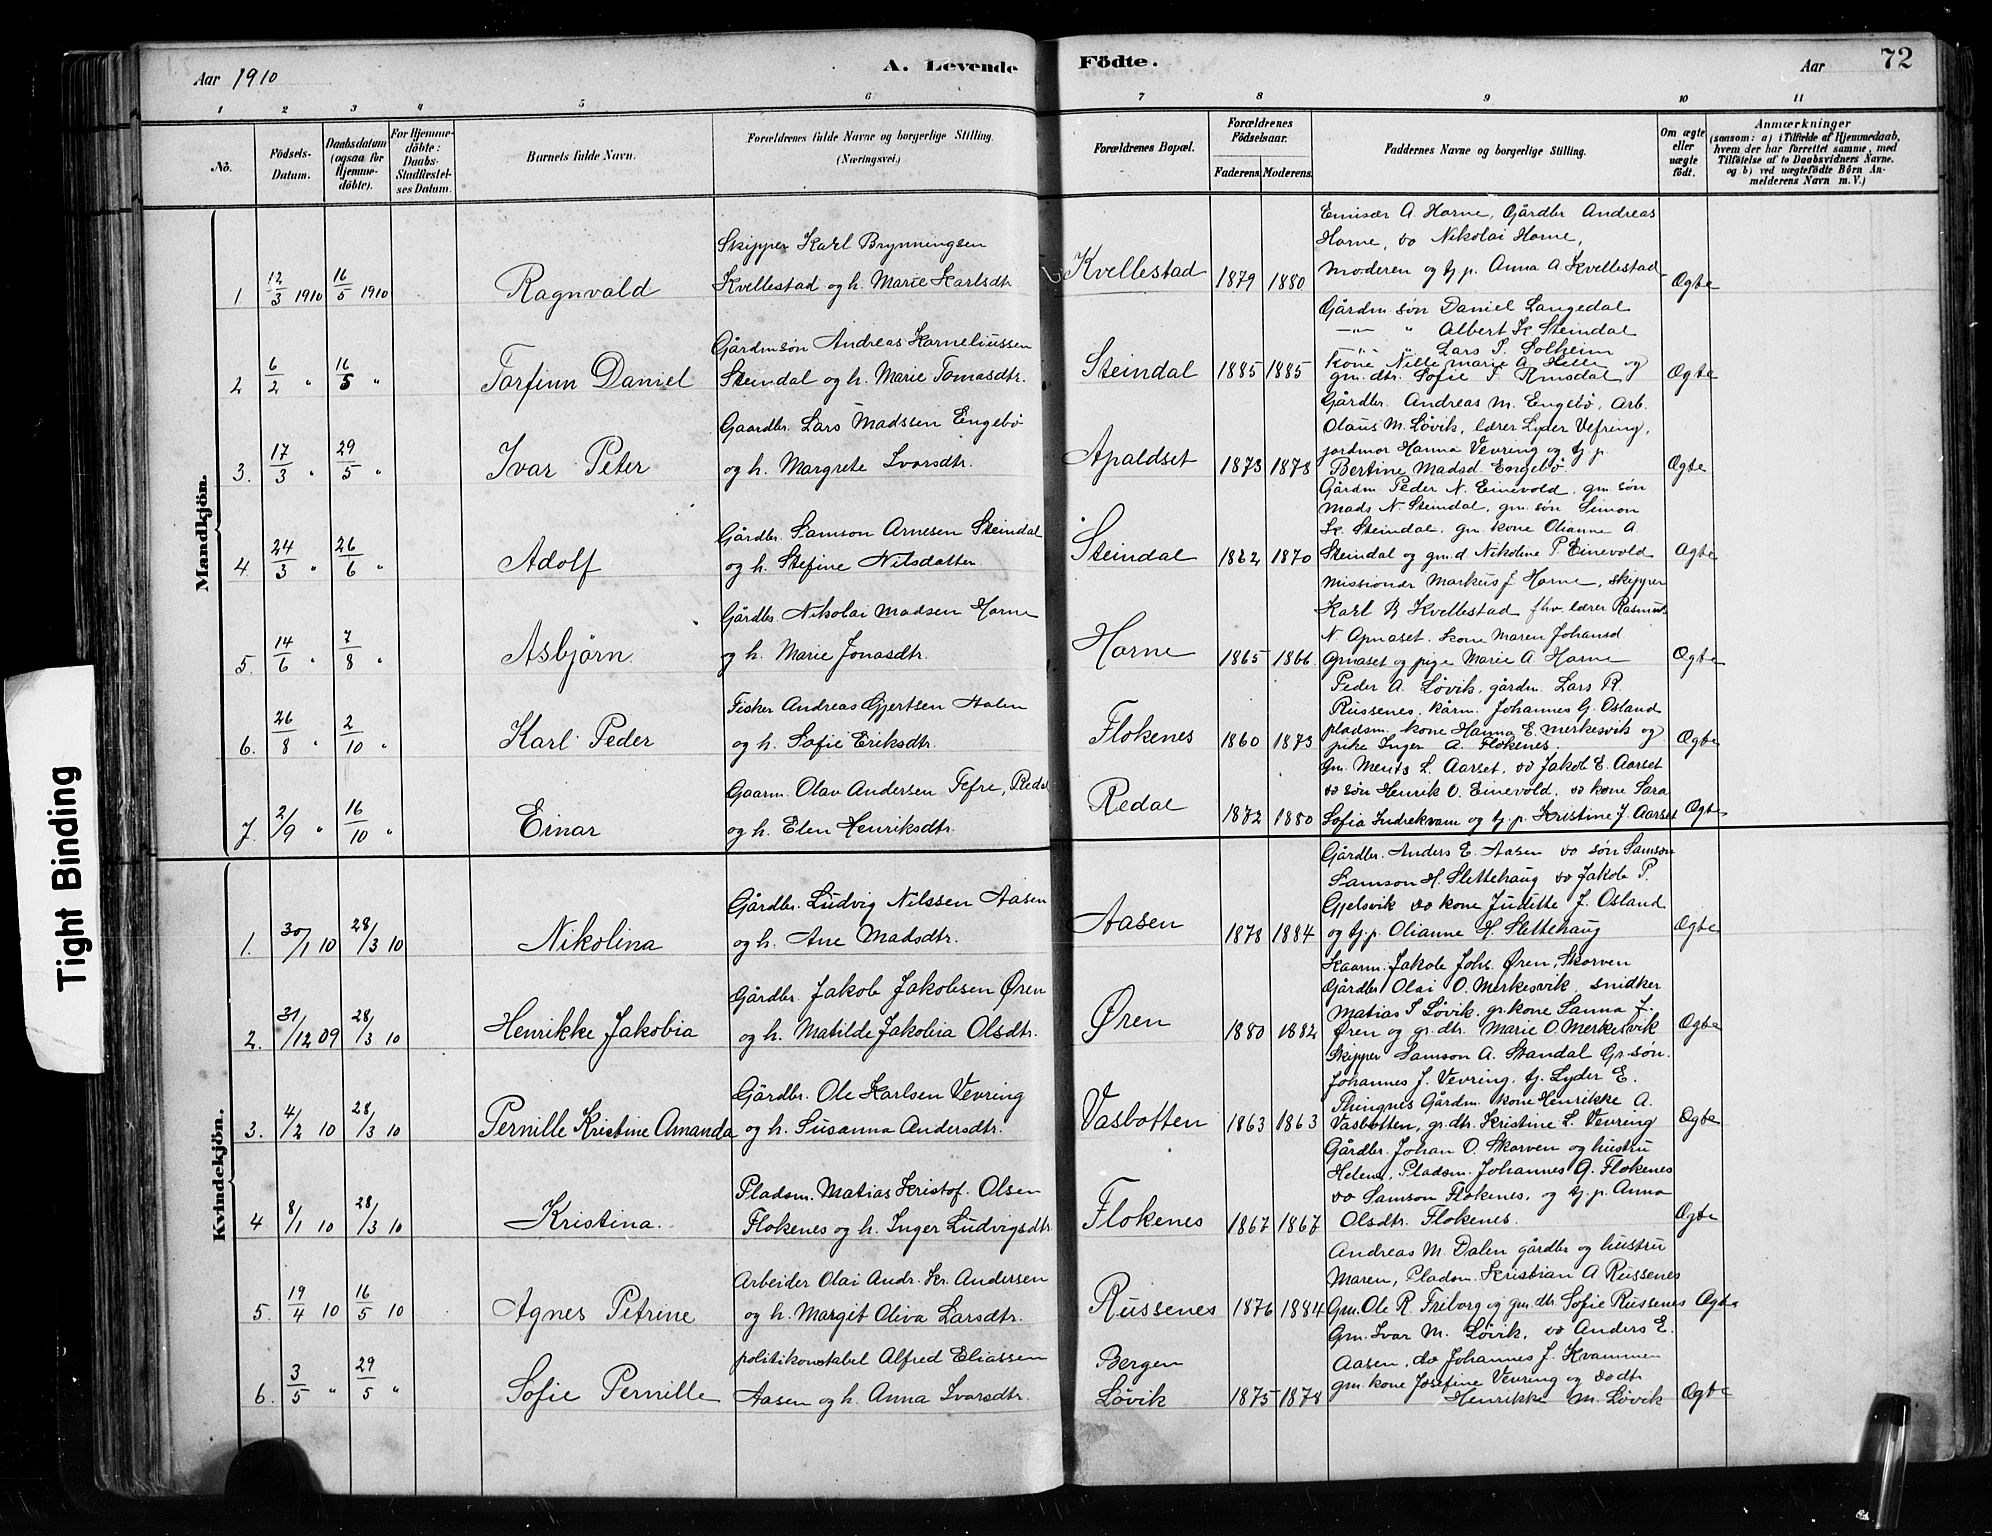 Aar 1910
A. Levende Födte.
Aar
72
1 2 3 4 5 6 7 8 9 10 11
No.
Födsels-Datum.
Daabsdatum (ogsaa for Hjemme-döbte).
For Hjemme-döbte: Daabs-Stadfæstel-ses Datum.
Barnets fulde Navn.
Forældrenes fulde Navne og borgerlige Stilling. (Næringsvei.)
Forældrenes Bopæl.
Forældrenes Födselsaar.
Faderens Moderens
Faddernes Navne og borgerlige Stilling.
Om ægte eller uægte födt.
Anmærkninger
(saasom: a) i Tilfælde af Hjemmedaab,
hvem der har forrettet samme, med
Tilföielse af to Daabsvidners Navne.
og b) ved uægtefödte Börn An-
melderens Navn m. V.)
Mandkjön.
1 12/3 1910 16/5 1910 Ragnvald
Skipper Karl Brynningsen
Kvellestad og h. Marie Karlsdtr
Kvellestad 1879 1880
Emisær A. Horne, Gårdbr Andreas
Horne, do Nikolai Horne,
moderen og tj.p. Anna A Kvellestad
Ægte
2 6/2 " 16/5 " Torfinn Daniel
Gårdmsøn Andreas Korneliussen
Steindal og h. Marie Tomasdtr.
Steindal 1885 1885
Gårdm søn Daniel Langedal
—"— " Albert K Steindal
" Lars T. Solheim
Kone Nille marie A. Helle og
gm.dtr. Sofie T. Ramsdal
Ægte
3. 17/3 " 29/5 " Ivar Peter
Gaardbr. Lars Madssen Engebø
og h. Margrete Ivarsdtr.
Apaldset 1873 1878
Gårdbr. Andreas M. Engebø, Arb.
Olaus M. Løvik, lærer Lyder Vefring,
jordmor Hanna Vevring og tj.p.
Bertine Madsd. Engebø
Ægte
4 24/3 " 26/6 " Adolf
Gårdbr. Samson Arnesen Steindal
og h. Stefine Nilsdatter.
Steindal 1862 1870
Gårdm Peder N. Einevold, gm søn
Mads N. Steindal, gm. søn Simon
K. Steindal, gm. kone Olianne A.
Steindal og gm.d Nikoline P. Einevold
Ægte
5. 14/6 " 7/8 " Asbjørn
Gårdbr. Nikolai Madsen Horne
og h. Marie Jonasdtr.
Horne 1865 1866
missionær Markus J Horne, skipper
Karl B Kvellestad fhv. lærer Rasmus
N Apnaset, kone Maren Johansd.
Apnaset og pige Marie A Horne
Ægte
6. 26/8 " 2/10 " Karl Peder
Fisker Andreas Gjertsen Holen
og h. Sofie Eriksdtr.
Flokenes 1860 1873
Peder A. Løvik, gårdm. Lars R.
Russenes, kårm. Johannes G. Osland
pladsm. kone Hanna E. Merkesvik og
pike Inger A. Flokenes.
Ægte
7. 2/9 " 16/10 " Einar
Gaarm. Olav Andersen Tefre, Redal
og h. Elen Henriksdtr.
Redal 1872 1880
Gm. Ments L. Aarset, do Jakob E. Aarset
do søn Henrik O. Einevold, do kone Sara
Sofia Indrekvam og tj.p. Kristine J. Aarset
Ægte
Kvindekjön.
1. 30/1 10 28/3 10 Nikolina
Gårdbr. Ludvig Nilssen Aasen
og h. Ane Madsdtr.
Aasen 1878 1884
Gårdbr. Anders E. Aasen do søn Samson
Samson H. Slettehaug do Jakob P.
Gjelsvik do kone Juditte J. Osland
og tj.p. Olianne H Slettehaug
Ægte
2. 31/12 09 28/3 10 Henrikke Jakobia
Gårdbr. Jakob Jakobsen Øren
og h. Matilde Jakobia Olsdtr.
Øren 1880 1882
Kaarm. Jakob Johs. Øren, Skorven
Gårdbr Olai O. Merkesvik, snidker
Matias S Løvik, gr.kone Sanna J.
Øren og gr. dtr. Marie O. Merkesvik
Ægte
3. 4/2 10 28/3 10 Pernille Kristine Amanda
Gårdbr. Ole Karlsen Vevring
og h. Susanna Andersdtr.
Vasbotten 1863 1863
Skipper Samson A. Standal Gr-søn.
Johannes J. Vevring, tj. Lyder E.
Thingnes Gårdm. kone Henrikke A.
Vasbotten, gr.dtr. Kristine L. Vevring
Ægte
4 8/1 10 28/3 10 Kristina.
Pladsm. Matias Kristof. Olsen
Flokenes og h. Inger Ludvigsdtr.
Flokenes 1867 1867
Gårdbr. Johan O. Skorven og hustru
Helene, Pladsm. Johannes G. Flokenes
do Samson Flokenes, og tj.p. Anna
Olsdtr. Flokenes.
Ægte
5. 19/4 10 16/5 10 Agnes Petrine
Arbeider Olai Andr. Kr. Andersen
og h. Margit Oliva Larsdtr.
Russenes 1876 1884
Andreas M. Dalen gårdbr og hustru
Maren, Pladsm. Kristian A Russenes
Gm. Ole R. Friborg og gm.dtr. Sofie Russenes
Ægte
6. 3/5 " 29/5 " Sofie Pernille
politikonstabel Alfred Eliassen
Aasen og h. Anna Ivarsdtr.
Bergen
Løvik 1875 1878
Gm. Ivar M. Løvik, do Anders E.
Aasen, do Johannes J. Kvammen
gm. kone Josefine Vevring og do dtr
Henrikke M. Løvik
Ægte
Tight Binding